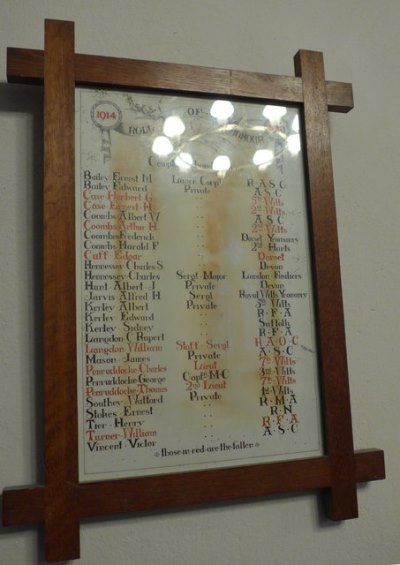 1914
ROLL OF HONOUR
Bailey·Ernest·M Lance Corpl R·A·S·C
Bailey·Edward Private A S C
Case·Herbert·G " 5th Wilts
Case·Ernest·H " 2nd Wilts
Coombs·Albert·W " A S C
Coombs·Arthur·H " 2nd Wilts
Coombs·Frederick " Dorset Yeomanry
Coombs·Harold·F " 2nd Hants
Cuff·Edgar " Dorset
Hennessey·Charles·S " Devon
Hennessey·Charles Sergt·Major London·Fusiliers
Albert·J Private Devon
Jarvis·Alfred·H Sergt Royal Wilts Yeomanry
Kerley·Albert Private 5th Wilts
Kerley·Edward " R·F·A
Kerley·Sidney " Suffolk
Langdon·C·Rupert " R·F·A
Langdon·William Staff·Sergt R·A·O·C
Mason·James Private A·S·C
Penruddocke·Charles Lieut 7th Wilts
Penruddocke·George Capt·M·C 3rd Wilts
Penruddocke·Thomas 2nd Lieut 7th Wilts
Southey·Walford Private 1st Wilts
Stokes·Ernest " R·M·A
Tier·Henry " R·N
Turner·William " R·F·A
Vincent·Victor " A·S·C
·those·in·red·are·the·fallen·